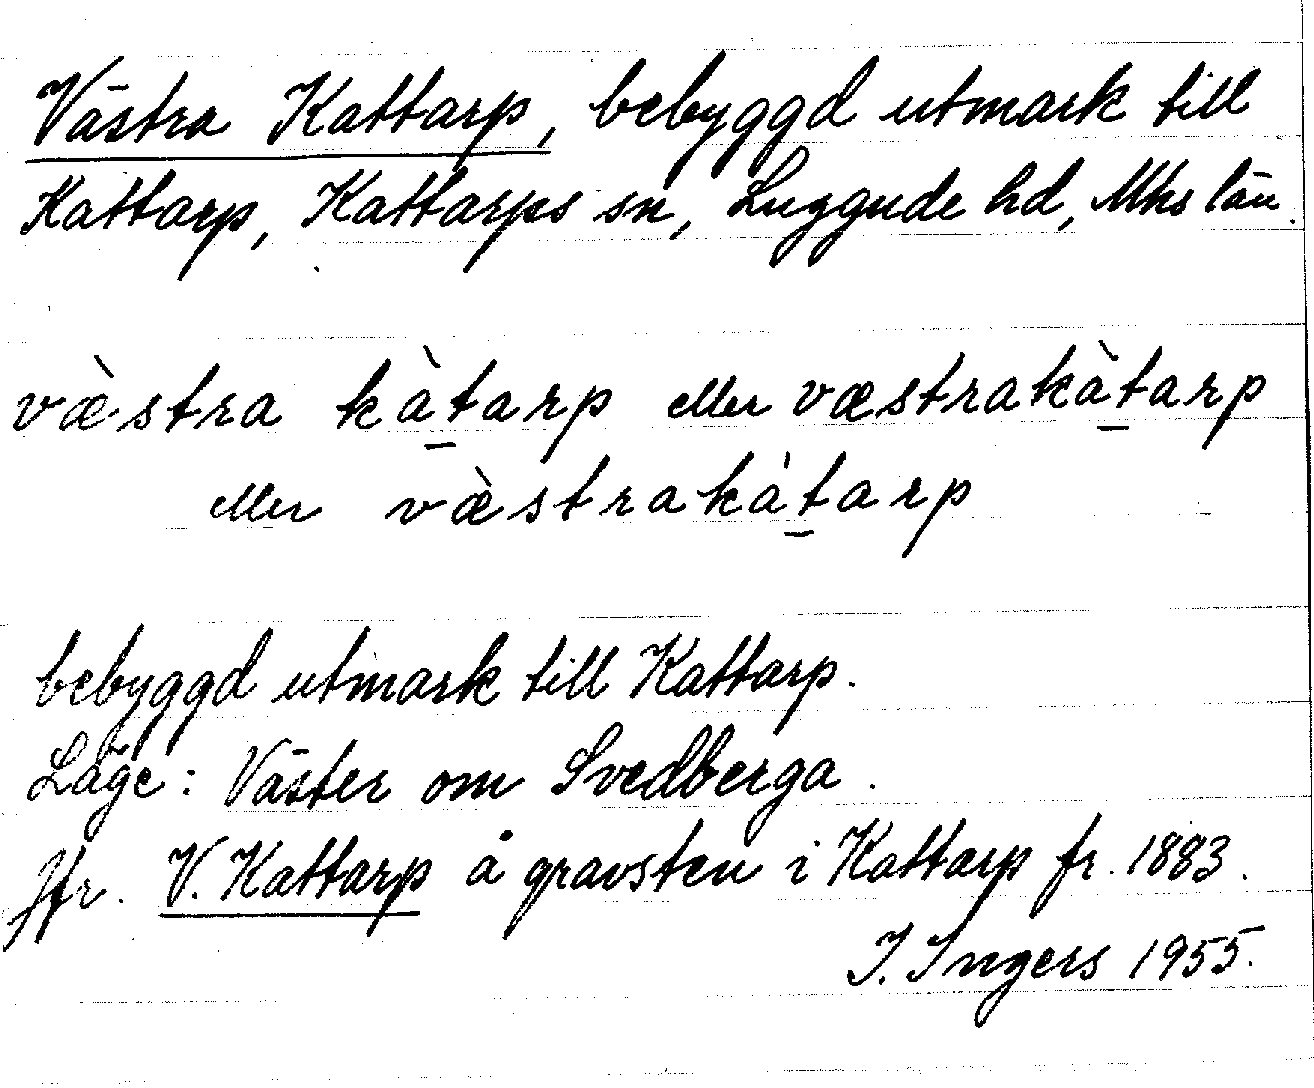 Västra Kattarp, bebyggd utmark till
Kattarp, Kattarps sn, Luggude hd, Mhs län.
væ̀stra kà̱tarp eller væstrakà̱tarp
eller væ̀strakà̱tarp
bebyggd utmark till Kattarp.
Läge: Väster om Svedberga.
Jfr. V. Kattarp å gravsten i Kattarp fr. 1883.
I. Ingers 1955.